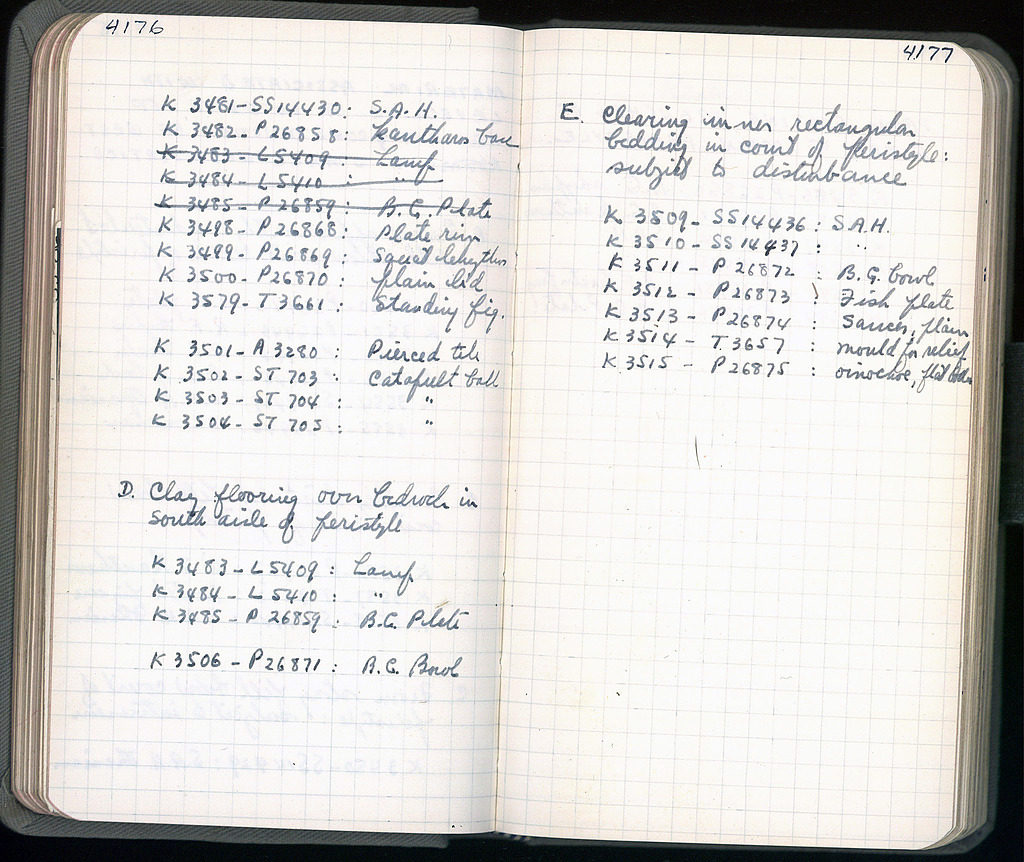 4176
K 3481-SS14430: S.A.H.
K 3482-P26858: kantharos base
K 3483-L5409: Lamp
K 3484-L5410: "
K 3485-P26859: B.G. Plate
K 3498-P26868: Plate rim
K 3499-P26869: Squat lekythos
K 3500-P26870: plain lid
K 3579-T3661: Standing fig.
K 3501-A3280: Pierced tile
K 3502-ST 703: Catapult ball
K 3503-ST 704: "
K 3504-ST 705: "
D. Clay flooring over bedrock in
south aisle of peristyle
K 3483-L5409: Lamp
K 3484-L5410: "
K 3485-P26859: B.G. Plate
K 3506-P26871: B.G. Bowl
4177
E. Clearing inner rectangular
bedding in court of peristyle:
subject to disturbance
K 3509-SS14436: S.A.H.
K 3510-SS14437: "
K 3511-P26872: B.G. bowl
K 3512-P26873: Fish plate
K 3513-P26874: Saucer, plain
K 3514-T3657: mould for relief
K 3515-P26875: oinochoe, flat